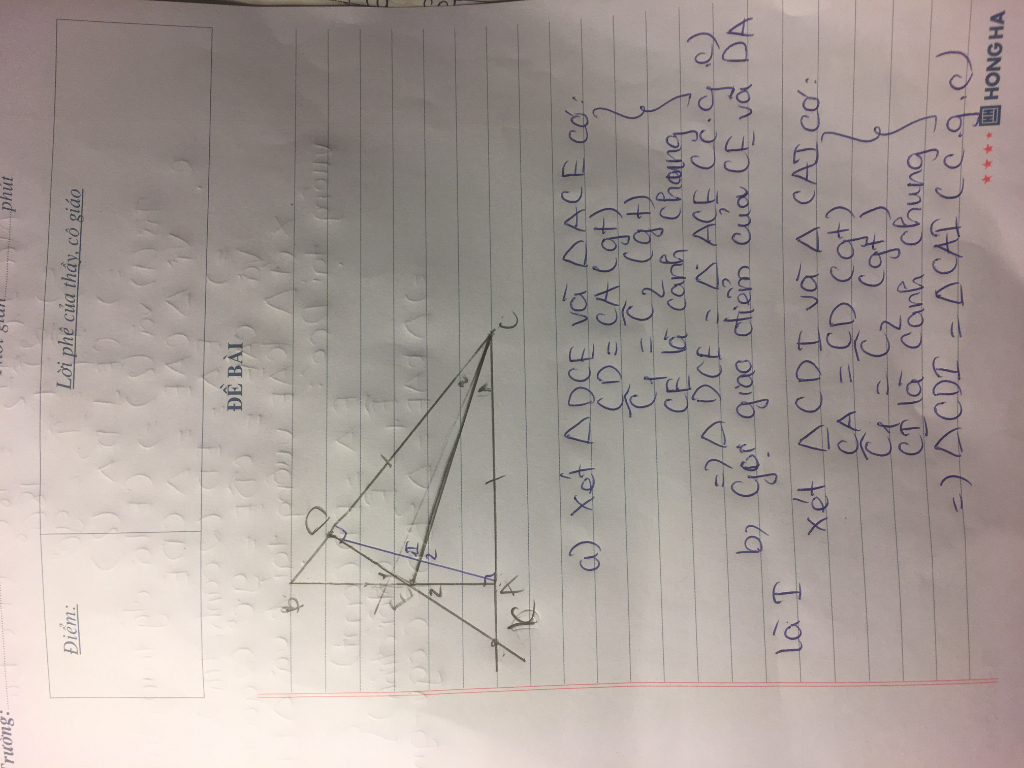 Trường:
phút
Điểm:
Lời phê của thầy, cô giáo
ĐỀ BÀI
B
D
E
I
A
K
C
a) Xét △ DCE và △ ACE có:
CD = CA (gt)
C1 = C2 (gt)
CE là cạnh chung
=) △ DCE = △ ACE (c.g.c)
b) Gọi giao điểm của CE và DA
là I
Xét △ CDI và △ CAI có:
CA = CD (gt)
C1 = C2 (gt)
CI là cạnh chung
=) △ CDI = △ CAI (c.g.c)
HONG HA